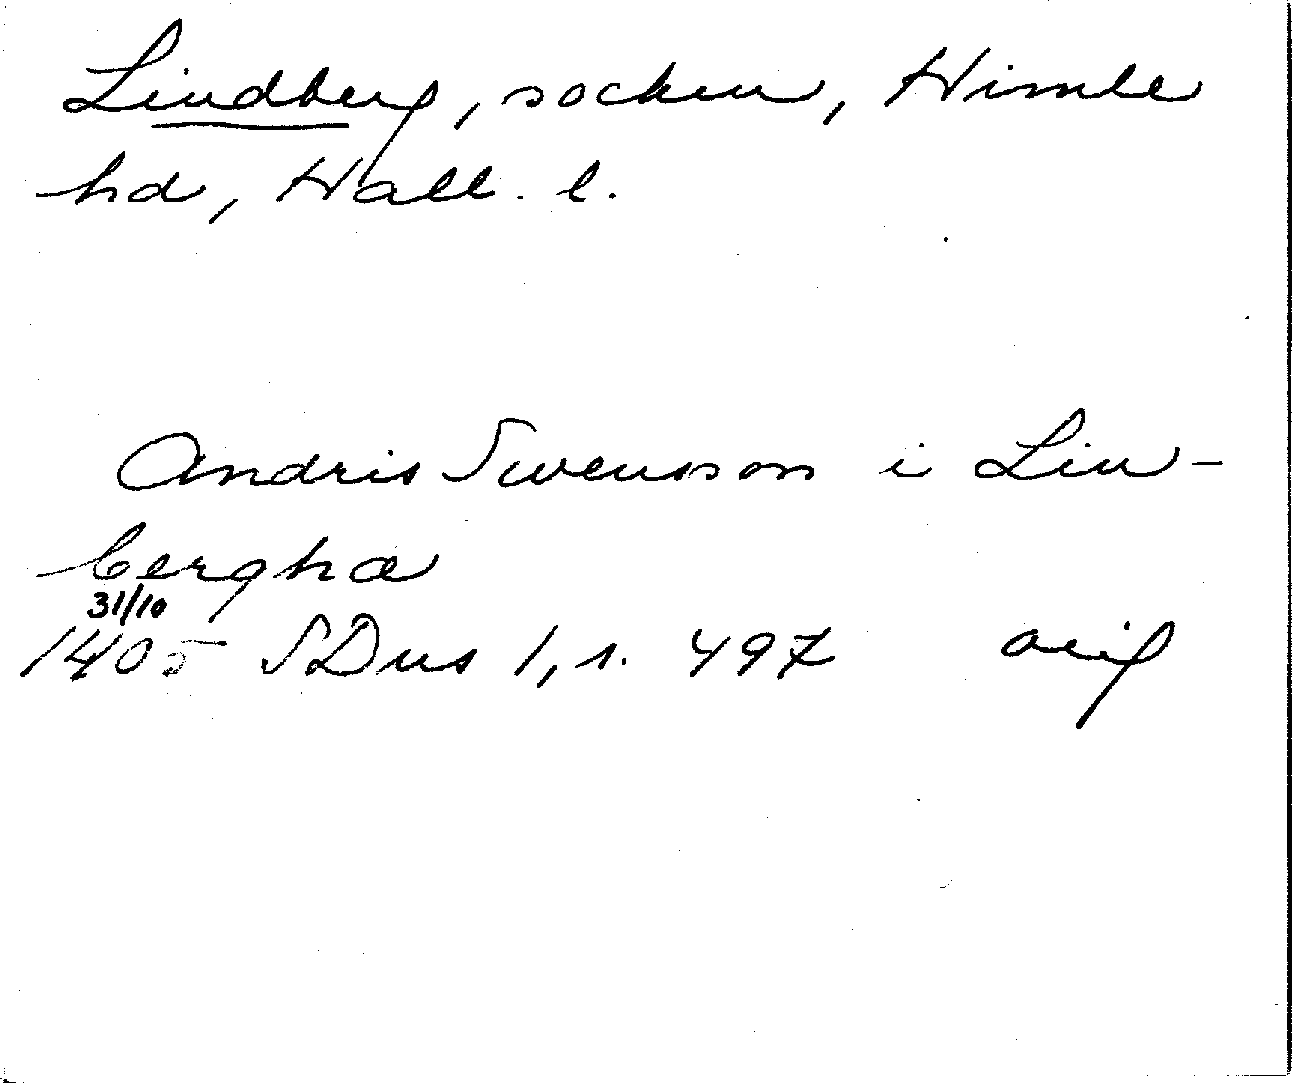 Lindberg, socken, Himle
hd, Hall. l.
Andris Swensson i Lin-
berghæ
31/10
1405 SDns 1, s. 497 orig